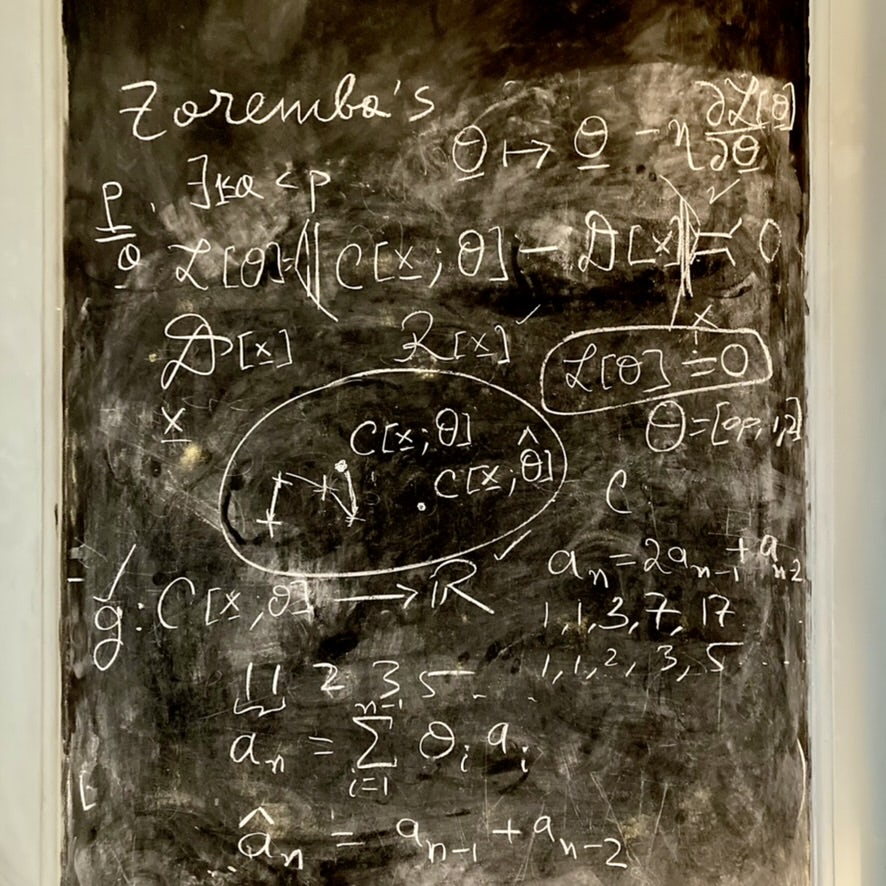 Zoremba's
θ ↦ θ - η ∂ℒ[θ]/∂θ
p/θ, ∃ < p
ℒ[θ]=‖C[x;θ] - 𝒟[x]‖ = 0
𝒟[x] ℛ[x] ✓
ℒ[θ] ≐ 0
x
C[x;θ]
θ=[
C[x;θ̂]
C
a_n = 2a_{n-1} + a_{n-2}
g: C[x;θ] → ℝ ✓
1, 1, 3, 7, 17
1, 1, 2, 3, 5 ...
1 1 2 3 5 ..
a_n = ∑_{i=1}^{n-1} θ_i a_i
â_n = a_{n-1} + a_{n-2}